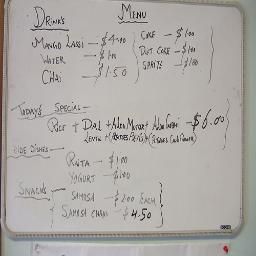 MENU
DRINKS
MANGO LASSI — $4.00
WATER — $1.00
CHAI — $1.50
COKE — $1.00
DIET COKE — $1.00
SPRITE — $1.00
TODAY'S SPECIAL —
RICE + DAL + ALOO MATAR + ALOO GOBI — $6.00
SIDE DISHES —
RAITA — $1.00
YOGURT — $1.00
SNACKS —
SAMOSA — $2.00 EACH
SAMOSA CHAAT — $4.50